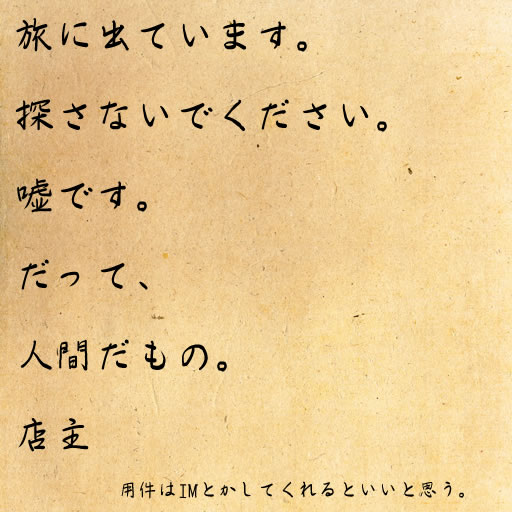 旅に出ています。
探さないでください。
嘘です。
だって、
人間だもの。
店主
用件はIMとかしてくれるといいと思う。